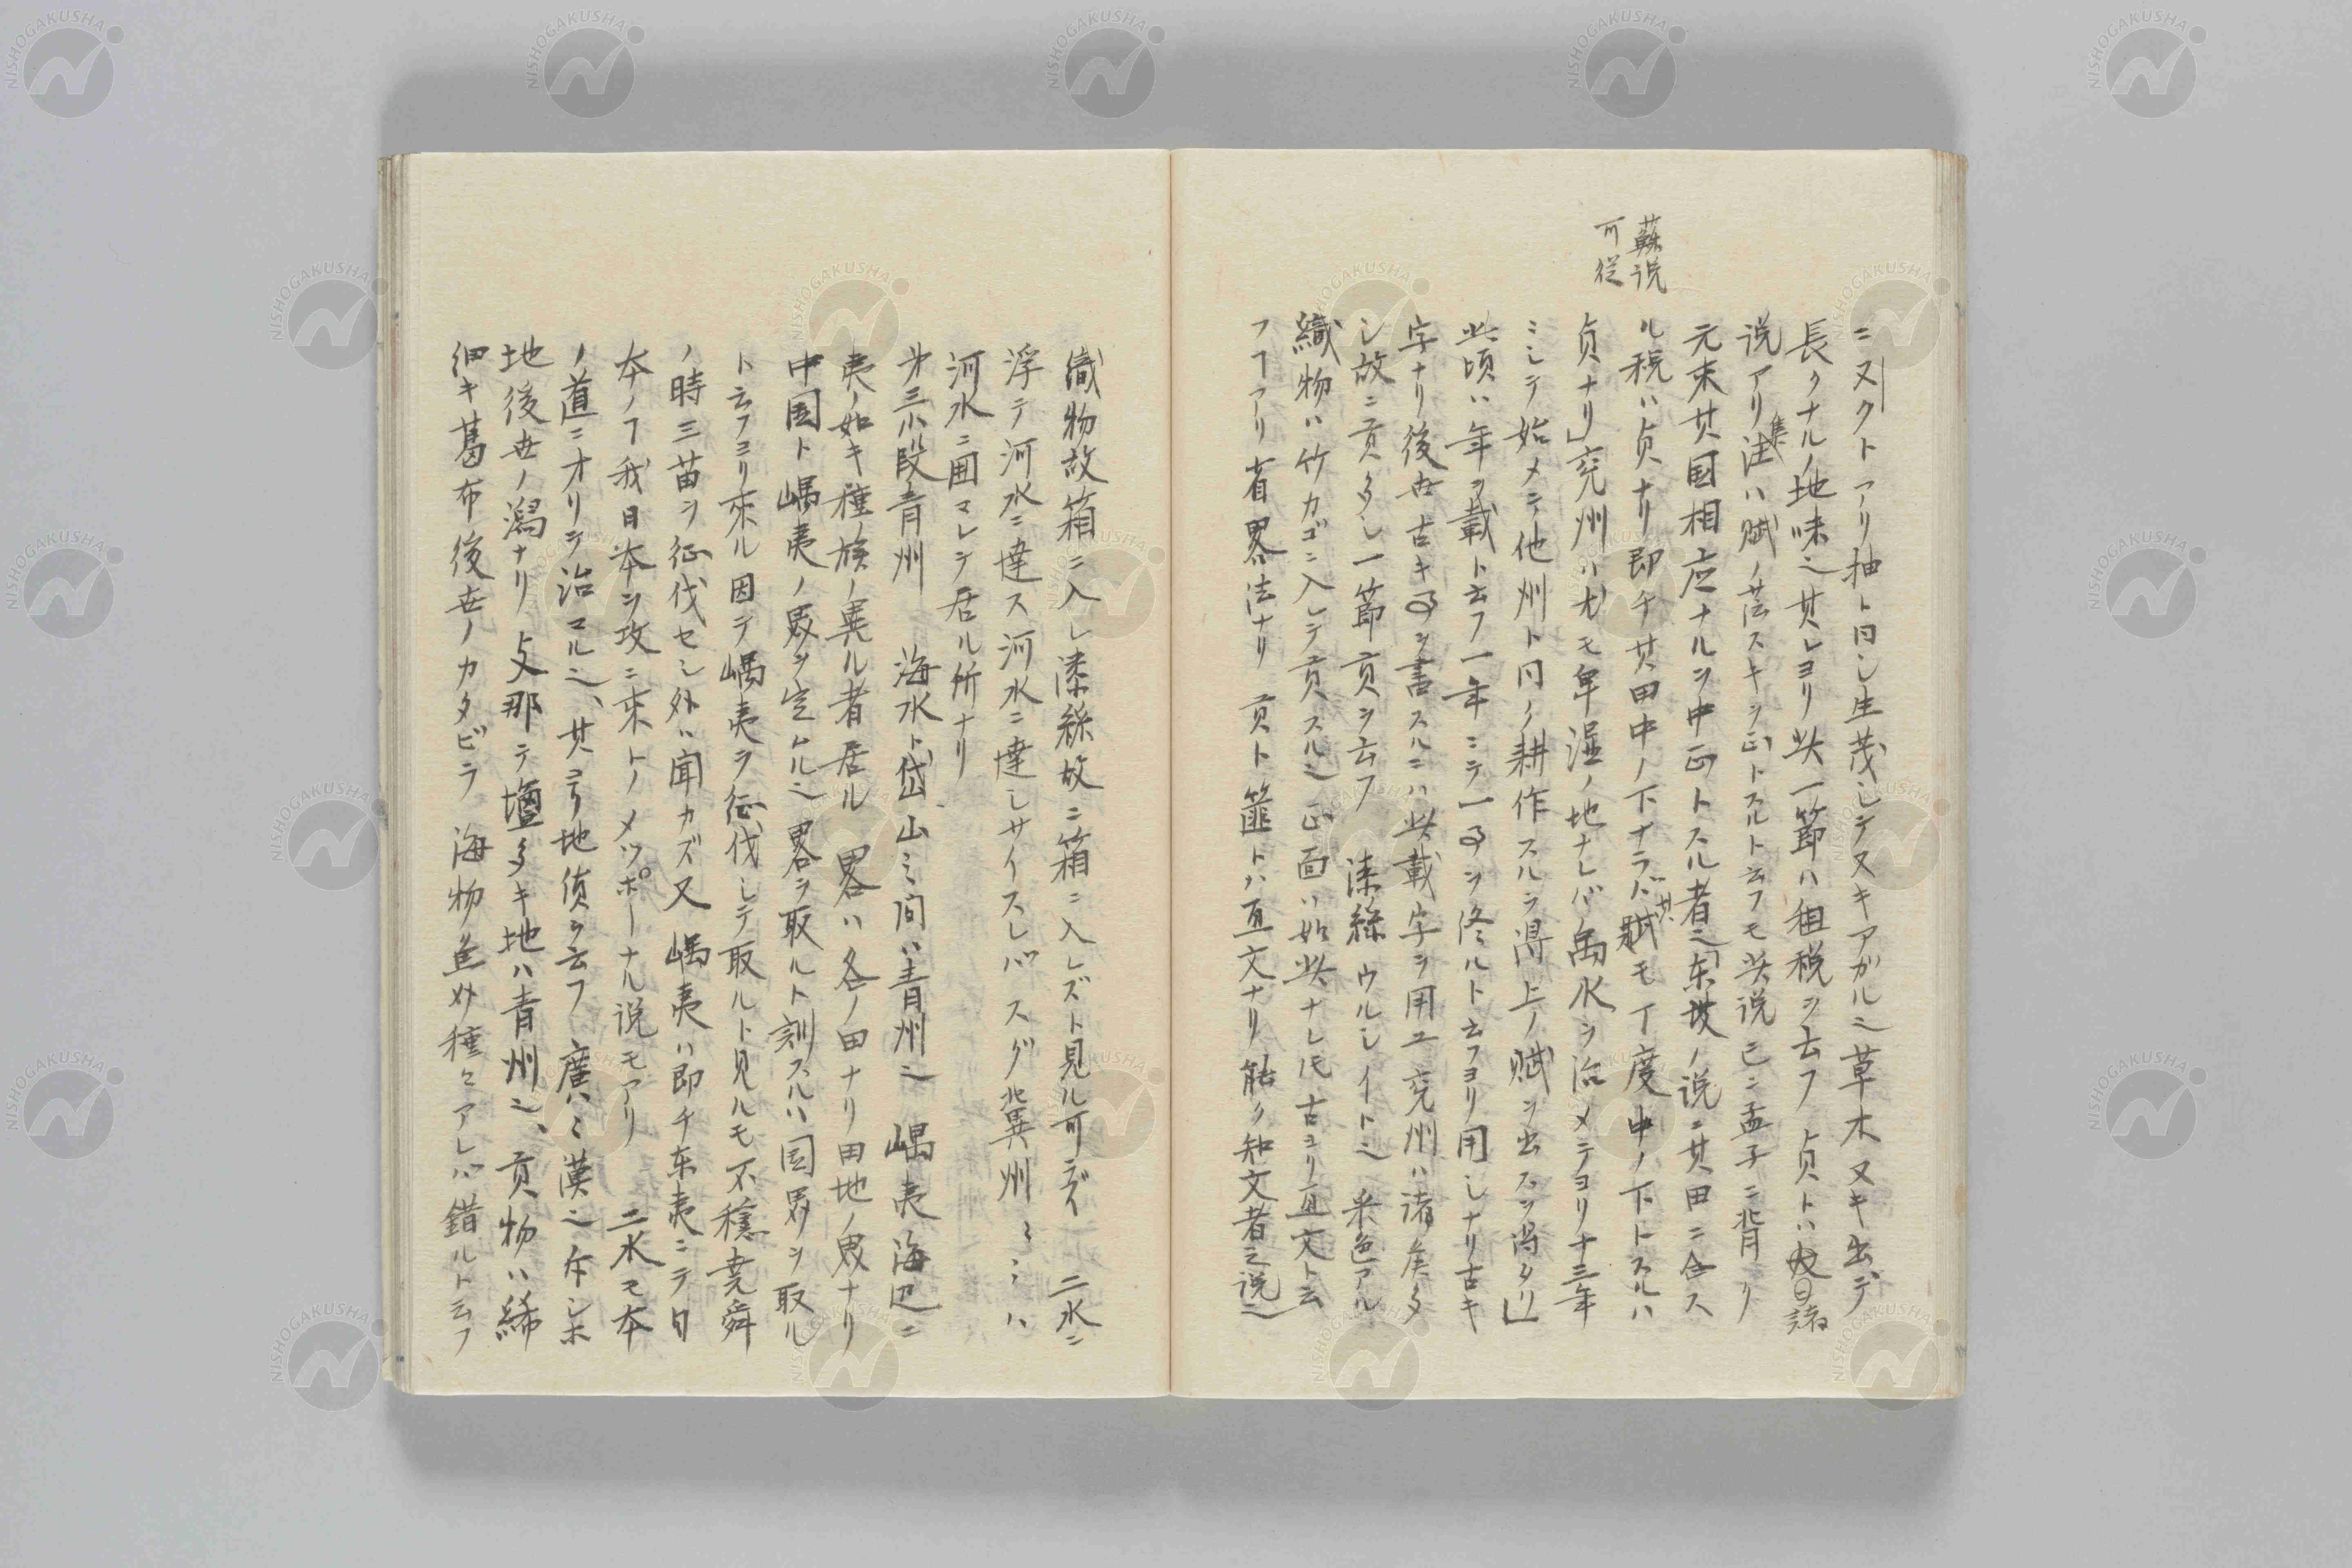 蘇説
可従
ニヌクトアリ抽ト同シ生茂シテヌキアガル也草木ヌキ出デ
長クナルノ地味也其レヨリ此一節ハ租税ヲ云フ貞トハ諸
説アリ集注ハ賦ノ薄スキヲ正トスルト云フモ此説已ニ孟子ニ背ク
元来其国相応ナルヲ中正トスル者也「東坡ノ説ニ其田ニ合ス
ル税ハ貞ナリ即チ其田中ノ下ナラバ其賦モ丁度中ノ下トスルハ
貞ナリ」兗州ハ尤モ卑湿ノ地ナレバ禹水ヲ治メテヨリ十三年
ミシテ始メテ他州ト同ク耕作スルヲ得上ノ賦ヲ出スヲ得タリ」
此頃ハ年ヲ載ト云フ一年ニテ一事ヲ終ルト云フヨリ用シナリ古キ
字ナリ後世古キ事ヲ書スルニハ此載字ヲ用ユ兗州ハ漆多
シ故ニ貢多シ一節貢ヲ云フ 漆絲ウルシイト也 采色アル
織物ハ竹カゴニ入レテ貢スル也正面ハ如此ナレ𪜈古ヨリ互文ト云
フヿアリ省畧法ナリ 貢ト篚トハ互文ナリ能ク知文者之説也
織物故箱ニ入レ漆絲故ニ箱ニ入レズト見ル可ラズ 二水ニ
浮テ河水ニ達ス河水ニ達シサイスレバスグ冀州ミミハ
河水ニ囲マレテ居ル所ナリ
第三小段青州 海水ト岱山ミ間ハ青州也 嵎夷海辺ニ
夷ノ如キ種ノ族ノ異ル者居ル 畧ハ各ノ田ナリ田地ノ界ナリ
中国ト嵎夷ノ界ヲ定ムル也畧ヲ取ルト訓スルハ国界ヲ取ル
ト云フヨリ来ル因テ嵎夷ヲ征伐シテ取ルト見ルモ不穏堯舜
ノ時三苗ヲ征伐セシ外ハ聞カズ又嵎夷ハ即チ東夷ニテ日
本ノヿ我日本ヲ攻ニ来トノメツポーナル説モアリ 二水モ本
ノ道ニオリテ治マル也、其ヨリ地償ヲ云フ 廣ハミ漢也年シホ
地後世ノ潟ナリ支那テ塩多キ地ハ青州也、貢物ハ絺
細キ葛布後世ノカタビラ 海物魚妙種々アレバ錯ルト云フ